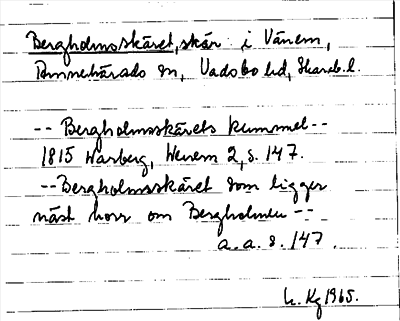 Bergholmsskäret, skär i Vänern,
Amnehärads sn, Vadsbo hd, Skarab. l.
-- Bergholmsskärets kummel --
1815 Warberg, Wenern 2, s. 147.
-- Bergholmsskäret som ligger
näst norr om Bergholmen --
a. a. s. 147.
Kg 1965.